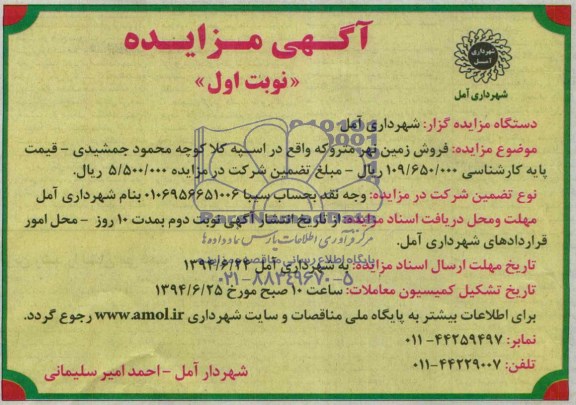 آگهی مزایده
«نوبت اول»
شهرداری آمل
شهرداری آمل
دستگاه مزایده گزار: شهرداری آمل
موضوع مزایده: فروش زمین نهر متروکه واقع در اسپه کلا کوچه محمود جمشیدی - قیمت
پایه کارشناسی ۱۰۹/۶۵۰/۰۰۰ ریال - مبلغ تضمین شرکت در مزایده ۵/۵۰۰/۰۰۰ ریال.
نوع تضمین شرکت در مزایده: وجه نقد بحساب سیبا ۰۱۰۶۹۵۶۶۵۱۰۰۶ بنام شهرداری آمل
مهلت ومحل دریافت اسناد مزایده: از تاریخ انتشار آگهی نوبت دوم بمدت ۱۰ روز - محل امور
قراردادهای شهرداری آمل.
تاریخ مهلت ارسال اسناد مزایده: به شهرداری آمل ۱۳۹۴/۶/۲۴
تاریخ تشکیل کمیسیون معاملات: ساعت ۱۰ صبح مورخ ۱۳۹۴/۶/۲۵
برای اطلاعات بیشتر به پایگاه ملی مناقصات و سایت شهرداری www.amol.ir رجوع گردد.
نمابر: ۴۴۲۵۹۴۹۷-۰۱۱
تلفن: ۴۴۲۲۹۰۰۷-۰۱۱
شهردار آمل - احمد امیر سلیمانی
مرکز فرآوری اطلاعات پارس نماد داده ها
پایگاه اطلاع رسانی مناقصه و مزایده
۰۲۱-۸۸۳۴۹۶۷۰-۵